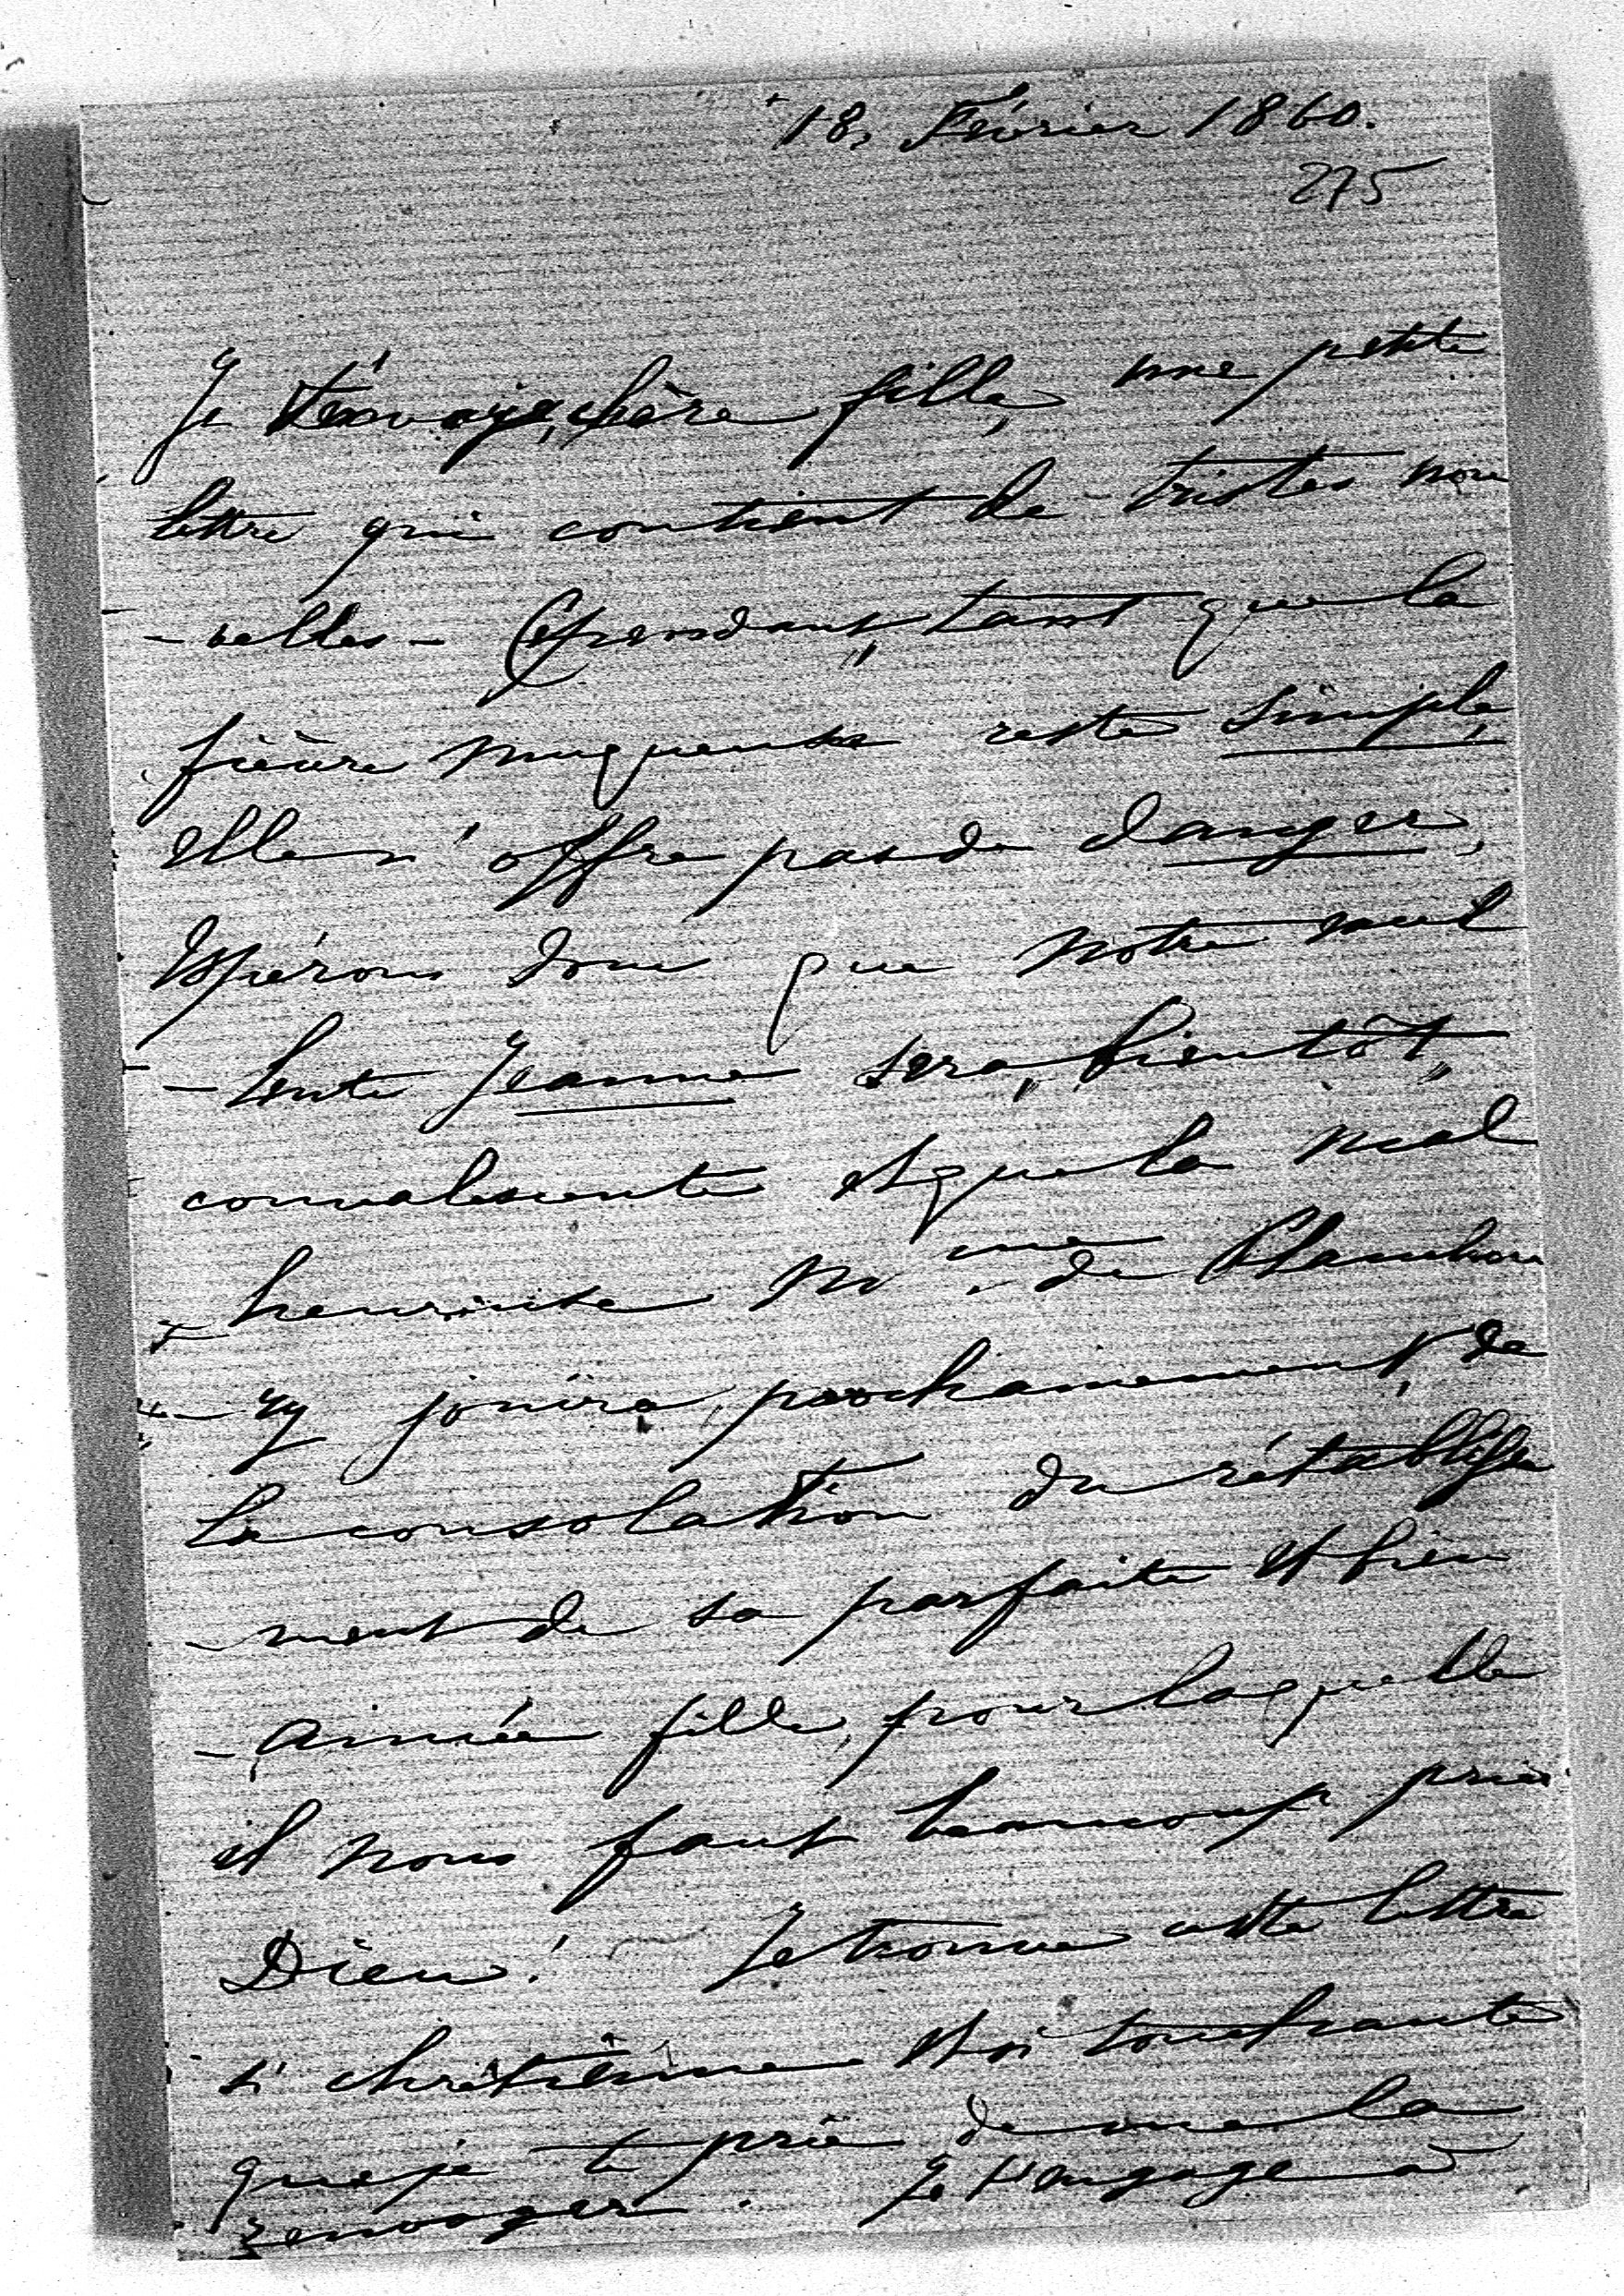 18. Février 1860.
275
Je t'envoie, chère fille, une petite
lettre qui contient de tristes nou
- velles - Cependant, tant que la
fièvre muqueuse reste simple,
elle n'offre pas de danger,
Espérons donc que notre excel
- lente Jeanne sera, bientôt,
convalescente et que la mal
- heureuse Mme. de
- ry jouira, prochainement, de
la consolation du rétablisse
- ment de sa parfaite et bien
- aimée fille, pour laquelle
il nous faut beaucoup prier
Dieu! Je trouve cette lettre
si chrétienne et si touchante
que je te prie de me la
renvoyer. Je t'engage à